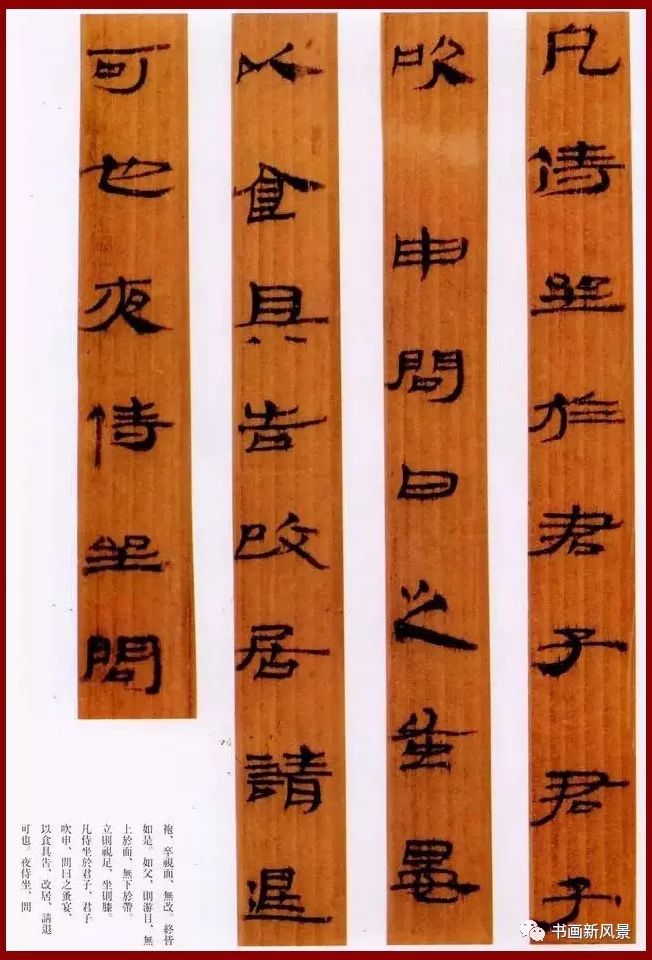 凡侍坐於君子君子
吹申問日之蚤晏
以食具告改居請退
可也夜侍坐問
袍、卒視面、無改。終皆
如是。如父、則游目、無
上於面、無下於帶。
立則視足、坐則膝。
凡侍坐於君子、君子
吹申、問日之蚤宴、
以食具告、改居、請退
可也。夜侍坐、問
书画新风景